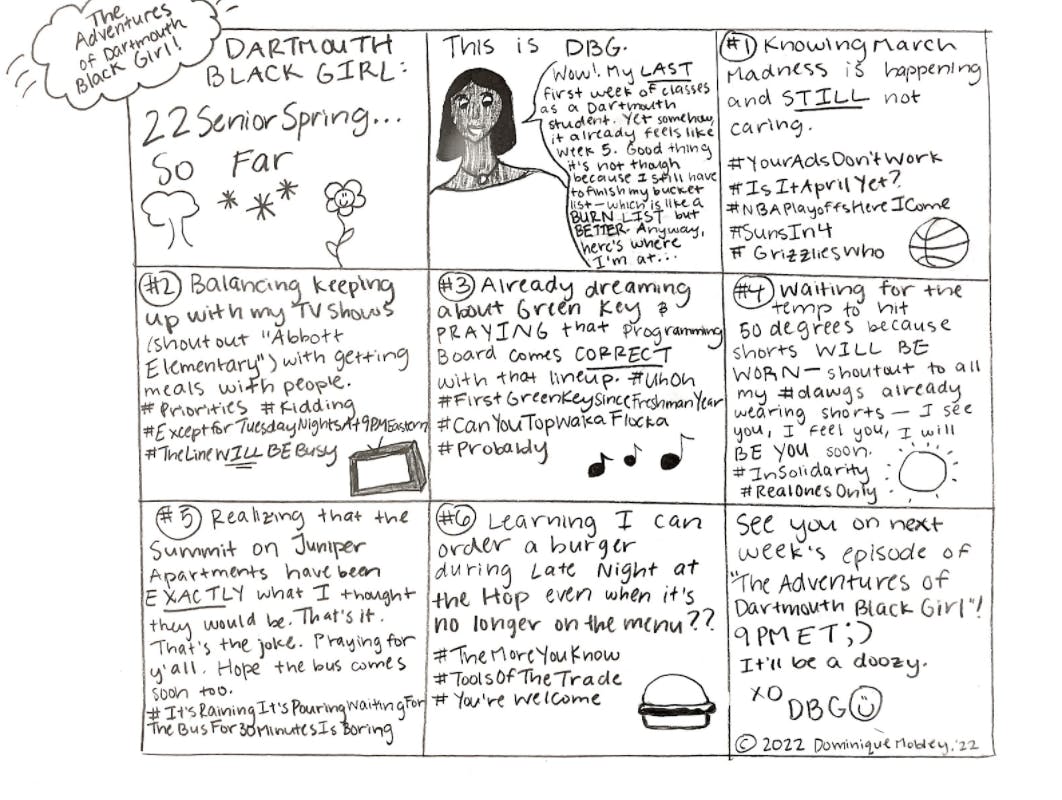 The
Adventures
of Dartmouth
Black Girl!
DARTMOUTH
BLACK GIRL:
22 Senior Spring...
So Far
This is DBG.
Wow! My LAST
first week of classes
as a Dartmouth
student. Yet somehow,
it already feels like
week 5. Good thing
it's not though
because I still have
to finish my bucket
list—which is like a
BURN LIST but
BETTER. Anyway,
here's where
I'm at...
#1 Knowing March
Madness is happening
and STILL not
caring.
#YourAdsDon'tWork
#IsItAprilYet?
#NBAPlayoffsHereICome
#SunsIn4
#GrizzliesWho
#2 Balancing keeping
up with my TV shows
(shout out "Abbott
Elementary") with getting
meals with people.
#Priorities #Kidding
#ExceptforTuesdayNightsAt9PMEastern
#TheLineWILLBEBusy
#3 Already dreaming
about Green Key &
PRAYING that Programming
Board comes CORRECT
with that lineup. #UhOh
#FirstGreenKeySinceFreshmanYear
#CanYouTopWakaFlocka
#Probably
#4 Waiting for the
temp to hit
50 degrees because
shorts WILL BE
WORN—shoutout to all
my #dawgs already
wearing shorts — I see
you, I feel you, I will
BE YOU soon.
#InSolidarity
#RealOnesOnly
#5 Realizing that the
Summit on Juniper
Apartments have been
EXACTLY what I thought
they would be. That's it.
That's the joke. Praying for
y'all. Hope the bus comes
soon too.
#It'sRainingIt'sPouringWaitingFor
TheBusFor30MinutesIsBoring
#6 Learning I can
order a burger
during Late Night at
the Hop even when it's
no longer on the menu??
#TheMoreYouKnow
#ToolsOfTheTrade
#You'reWelcome
See you on next
week's episode of
"The Adventures of
Dartmouth Black Girl"!
9PM ET;)
It'll be a doozy.
XO
DBG
© 2022 Dominique Mobley, '22